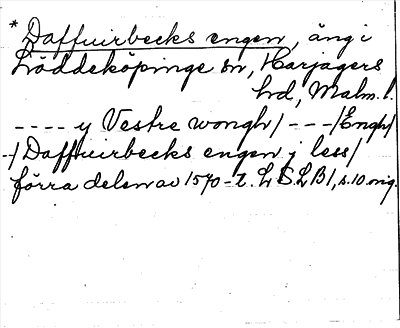 * Daffuirbecks engen, äng i
Löddeköpinge sn, Harjagers
hd, Malm. l.
- - - - y Vestre wongh / - - - / Engh /
-/ Daffuirbecks engen j less /
förra delen av 1570-t. L S. L B 1, s. 10 orig.